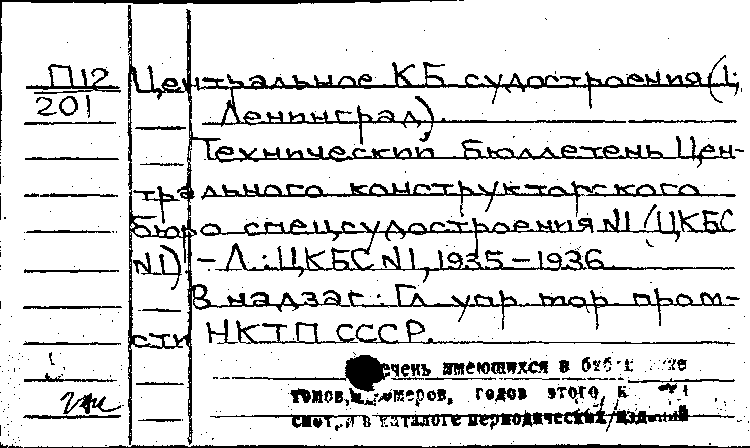 П12 Центральное КБ судостроения (1;
201 Ленинград).
Технический бюллетень Цен-
трального конструкторского
бюро спецсудостроения N1 (ЦКБС
N1) - Л.: ЦКБС N1, 1935-1936
В надзаг.: Гл. упр. тор. пром-
сти НКТП СССР.
имеющихся в
томов, номеров, годов этого
смотри в каталоге периодических изданий